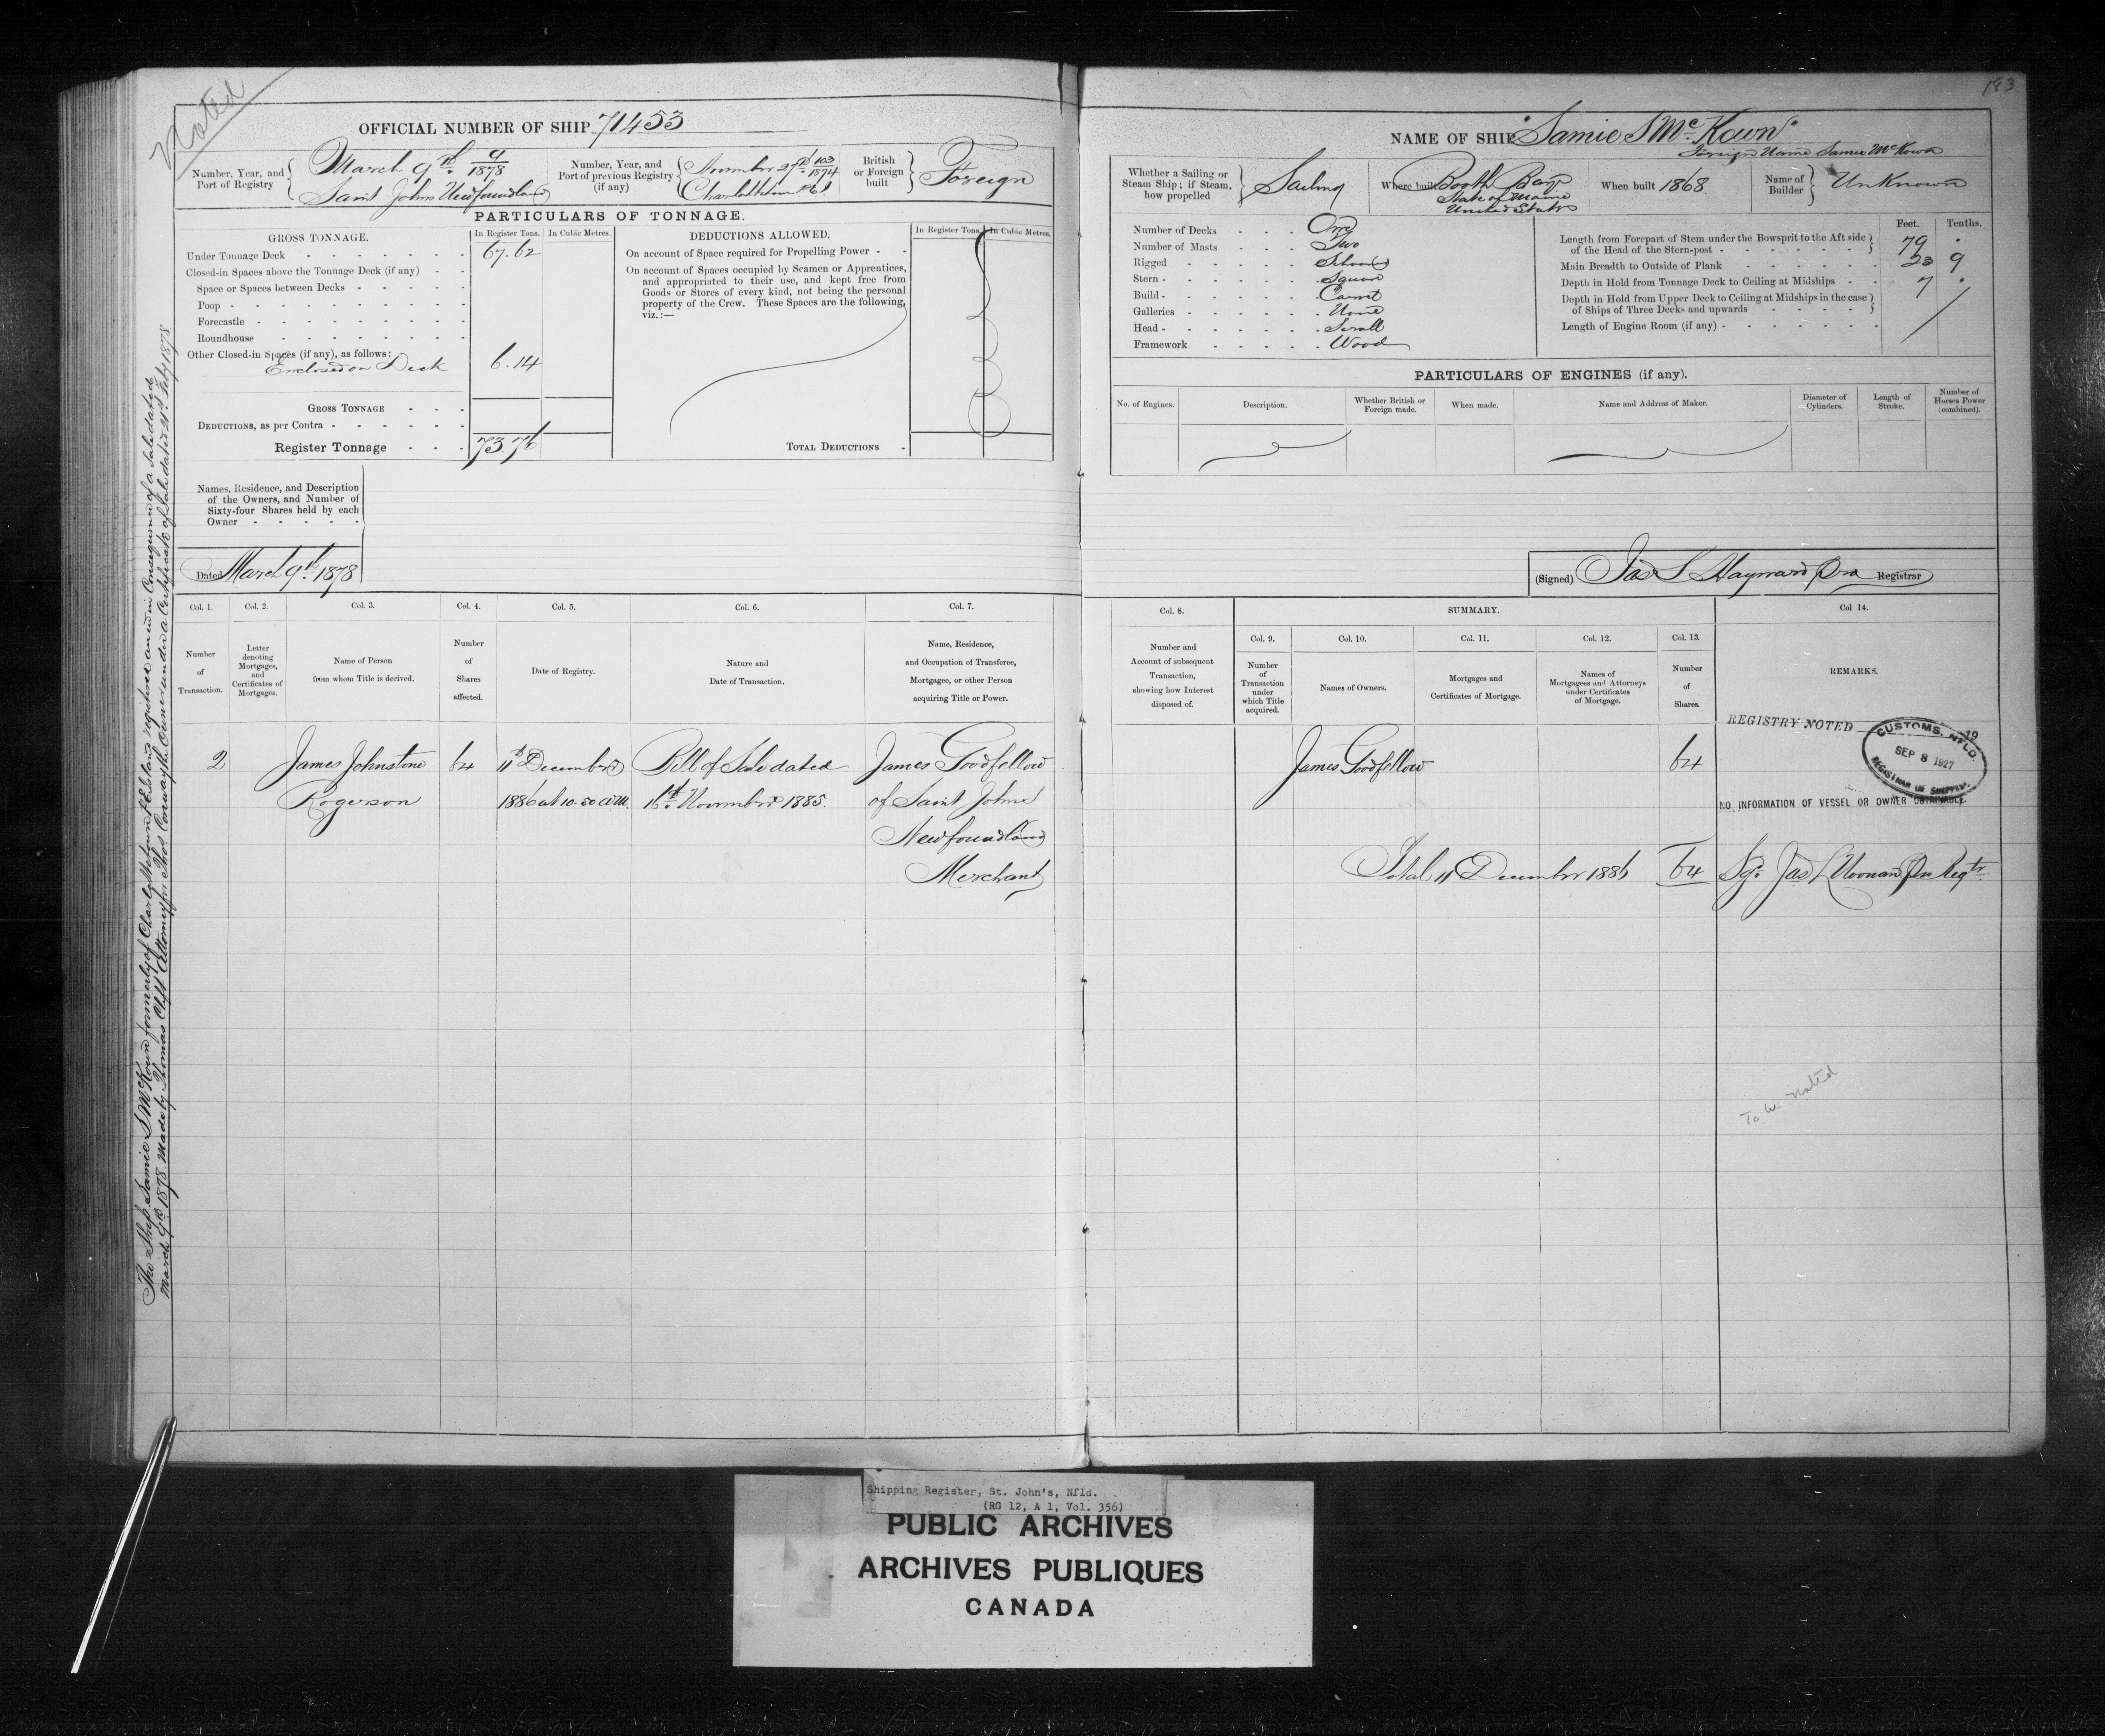 Noted
183
OFFICIAL NUMBER OF SHIP 71453
Number, Year, and Port of Registry
March 9th 9/1878
Saint Johns Newfoundland
Number, Year, and Port of previous Registry (if any)
November 27th 103/1874
Charlottetown P E I
British or Foreign built
Foreign
PARTICULARS OF TONNAGE.
GROSS TONNAGE.
In Register Tons.
In Cubic Metres.
Under Tonnage Deck - 67.62
Closed-in Spaces above the Tonnage Deck (if any)
Space or Spaces between Decks
Poop
Forecastle
Roundhouse
Other Closed-in Spaces (if any), as follows:
Enclosed on Deck 6.14
GROSS TONNAGE
DEDUCTIONS, as per Contra
Register Tonnage 73.76
DEDUCTIONS ALLOWED.
In Register Tons.
In Cubic Metres.
On account of Space required for Propelling Power
On account of Spaces occupied by Seamen or Apprentices,
and appropriated to their use, and kept free from
Goods or Stores of every kind, not being the personal
property of the Crew. These Spaces are the following,
viz.:—
TOTAL DEDUCTIONS
Names, Residence, and Description
of the Owners, and Number of
Sixty-four Shares held by each
Owner
Dated March 9th 1878
NAME OF SHIP "Samie S McKown"
Foreign Name Samie McKown
Whether a Sailing or Steam Ship; if Steam, how propelled
Sailing
Where built
Booth Bay
State of Maine
United States
When built 1868.
Name of Builder
Unknown
Number of Decks One
Number of Masts Two
Rigged Schooner
Stern Square
Build Carvel
Galleries None
Head Scroll
Framework Wood
Feet. Tenths.
Length from Forepart of Stem under the Bowsprit to the Aft side
of the Head of the Stern-post 79 .
Main Breadth to Outside of Plank 23 9
Depth in Hold from Tonnage Deck to Ceiling at Midships 7 .
Depth in Hold from Upper Deck to Ceiling at Midships in the case
of Ships of Three Decks and upwards
Length of Engine Room (if any)
PARTICULARS OF ENGINES (if any).
No. of Engines.
Description.
Whether British or Foreign made.
When made.
Name and Address of Maker.
Diameter of Cylinders.
Length of Stroke.
Number of Horses Power (combined).
(Signed) Jas S Hayward Registrar
Col. 1. Col. 2. Col. 3. Col. 4. Col. 5. Col. 6. Col. 7.
Number of Transaction.
Letter denoting Mortgages, and Certificates of Mortgages.
Name of Person from whom Title is derived.
Number of Shares affected.
Date of Registry.
Nature and Date of Transaction.
Name, Residence, and Occupation of Transferee, Mortgagee, or other Person acquiring Title or Power.
2 James Johnstone 64 11th December Bill of Sale dated James Goodfellow
Rogerson 1886 at 10.50 a.m. 16th November 1885. of Saint Johns
Newfoundland
Merchant
Col. 8. SUMMARY. Col 14.
Col. 9. Col. 10. Col. 11. Col. 12. Col. 13.
Number and Account of subsequent Transaction, showing how Interest disposed of.
Number of Transaction under which Title acquired.
Names of Owners.
Mortgages and Certificates of Mortgage.
Names of Mortgagees and Attorneys under Certificates of Mortgage.
Number of Shares.
REMARKS.
James Goodfellow 64
REGISTRY NOTED 19
CUSTOMS, NFLD.
SEP 8 1927
REGISTRAR OF SHIPPING
NO INFORMATION OF VESSEL OR OWNER OBTAINABLE.
Total 11 December 1886 64 Sgd Jas L Noonan Regtr
To be noted
The Ship Samie S McKown formerly of Charlottetown P.E.Island registered anew in Consequence of a Sale dated
March 9th 1878. Made by Thomas Clift Attorney for Thos Conway the Owner under a Certificate of Sale dated 21st Feby 1878
Shipping Register, St. John's, Nfld.
(RG 12, A 1, Vol. 356)
PUBLIC ARCHIVES
ARCHIVES PUBLIQUES
CANADA